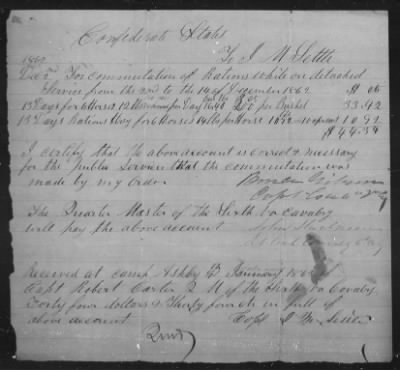 Confederate States
1862 To J M Settle
Dec 2 For commutation of Rations while on detached
Service from the 2nd to the 14th of December 1862 $ cts
13 Days for 6 Horses 12 per Day per Bushel 33.42
13 Days Rations Hay for 6 Horses 14 lbs per Horse 1092 10.92
$44.34
I certify that the above account is correct & necessary
for the public service & that the commutation was
made by my order
Capt Com
The Quarter Master of the Sixth Va Cavalry
will pay the above account John
Received at camp Ashby January 186
Capt Robert Carter Q M of the Sixth Va Cavalry
Forty four dollars & Thirty four cts in full of
above account
Copy J M Settle